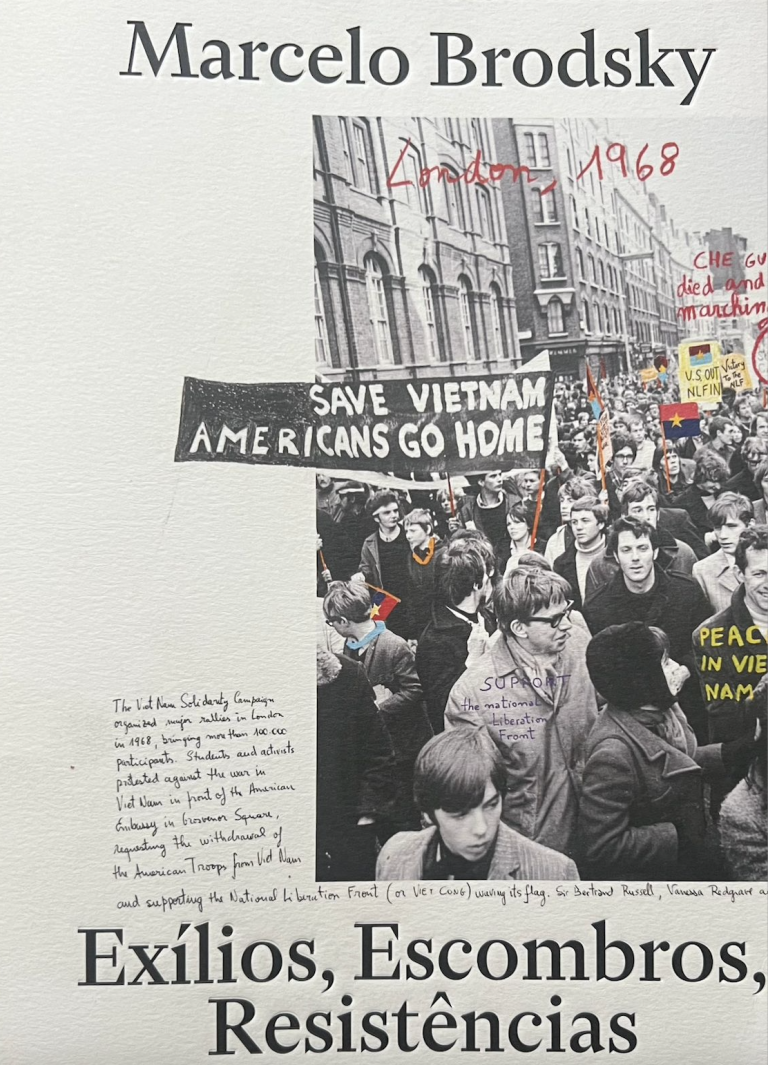 Marcelo Brodsky
London, 1968
CHE GU
died and
marchin
U.S. OUT
NLF IN
Victory
To The
NLF
SAVE VIETNAM
AMERICANS GO HOME
PEAC
IN VIE
NAM
SUPPORT
the national
Liberation
Front
The Viet Nam Solidarity Campaign
organized major rallies in London
in 1968, bringing more than 100.000
participants. Students and activists
protested against the war in
Viet Nam in front of the American
Embassy in Grosvenor Square,
requesting the withdrawal of
the American Troops from Viet Nam
and supporting the National Liberation Front (or VIET CONG) waving its flag. Sir Bertrand Russell, Vanessa Redgrave a
Exílios, Escombros,
Resistências